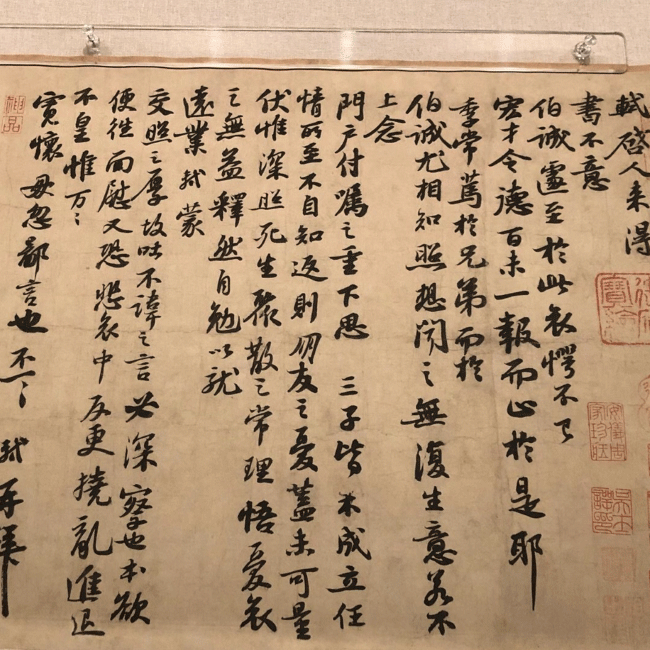 軾啓人来得
書不意
伯誠遽至於此哀愕不已
宏才令德百未一報而止於是耶
季常篤於兄弟而於
伯誠尤相知照想聞之無復生意若不
上念
門户付嘱之重下思三子皆未成立任
情所至不自知返則朋友之憂蓋未可量
伏惟深照死生聚散之常理悟憂哀
之無益釋然自勉以就
遠業軾蒙
交照之厚故吐不諱之言必深察也本欲
便往面慰又恐悲哀中反更撓亂進退
不皇惟万〻
寬懷毋忽鄙言也不一〻軾再拜